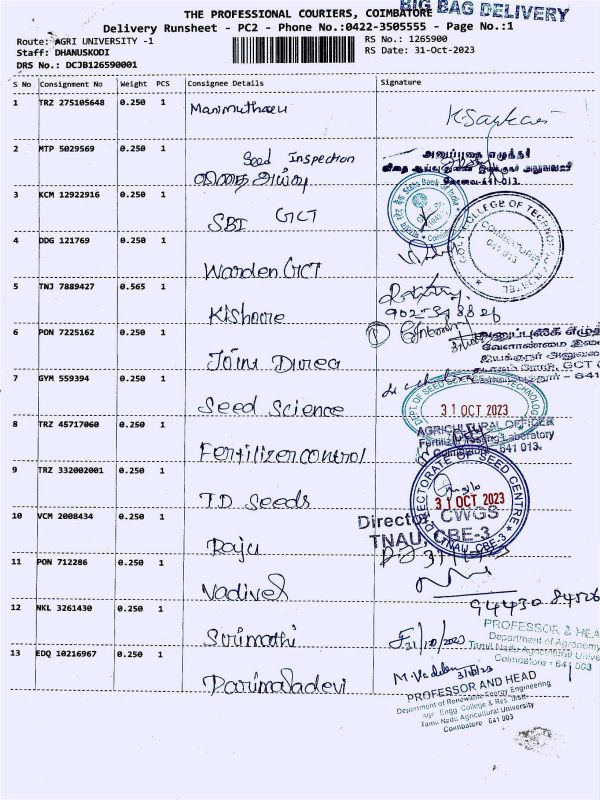 BIG BAG DELIVERY
THE PROFESSIONAL COURIERS, COIMBATORE
Delivery Runsheet - PC2 - Phone No.:0422-3505555 - Page No.:1
Route: AGRI UNIVERSITY -1
RS No.: 1265900
Staff: DHANUSKODI
RS Date: 31-Oct-2023
DRS No.: DCJB126590001
S No Consignment No Weight PCS Consignee Details Signature
1 TRZ 275105648 0.250 1
K Sankar
2 MTP 5029569 0.250 1 Seed Inspection
விதை ஆய்வு
அனுப்புதை எழுத்தர்
கோவை-641-013.
3 KCM 12922916 0.250 1 SBI GCT
State Bank of India
4 DDG 121769 0.250 1 Warden GCT
COLLEGE OF TECHNOLOGY
COIMBATORE
641 013
5 TNJ 7889427 0.565 1 Kishore
6 PON 7225162 0.250 1
வேளாண்மை
7 GYM 559394 0.250 1 Seed Science
DPT. OF SEED TECHNOLOGY
31 OCT 2023
8 TRZ 45717060 0.250 1 Fertilizer control
AGRICULTURAL OFFICER
Fertilizer Testing Laboratory
Coimbatore 641 013.
9 TRZ 332002001 0.250 1 T.D Seeds
DIRECTORATE OF SEED CENTRE
31 OCT 2023
TNAU, CBE-3
10 VCM 2008434 0.250 1 Raju
Director, CWGS
TNAU, CBE-3
11 PON 712286 0.250 1 Vadivel
12 NKL 3261430 0.250 1 Srimathi
94430 84526
PROFESSOR & HEAD
Department of Agronomy
Tamil Nadu Agricultural University
Coimbatore - 641 003
13 EDQ 10216967 0.250 1 Parimaladevi
PROFESSOR AND HEAD
Department of Renewable Energy Engineering
Agrl. Engg. College & Res. Instt.
Tamil Nadu Agricultural University
Coimbatore 641 003